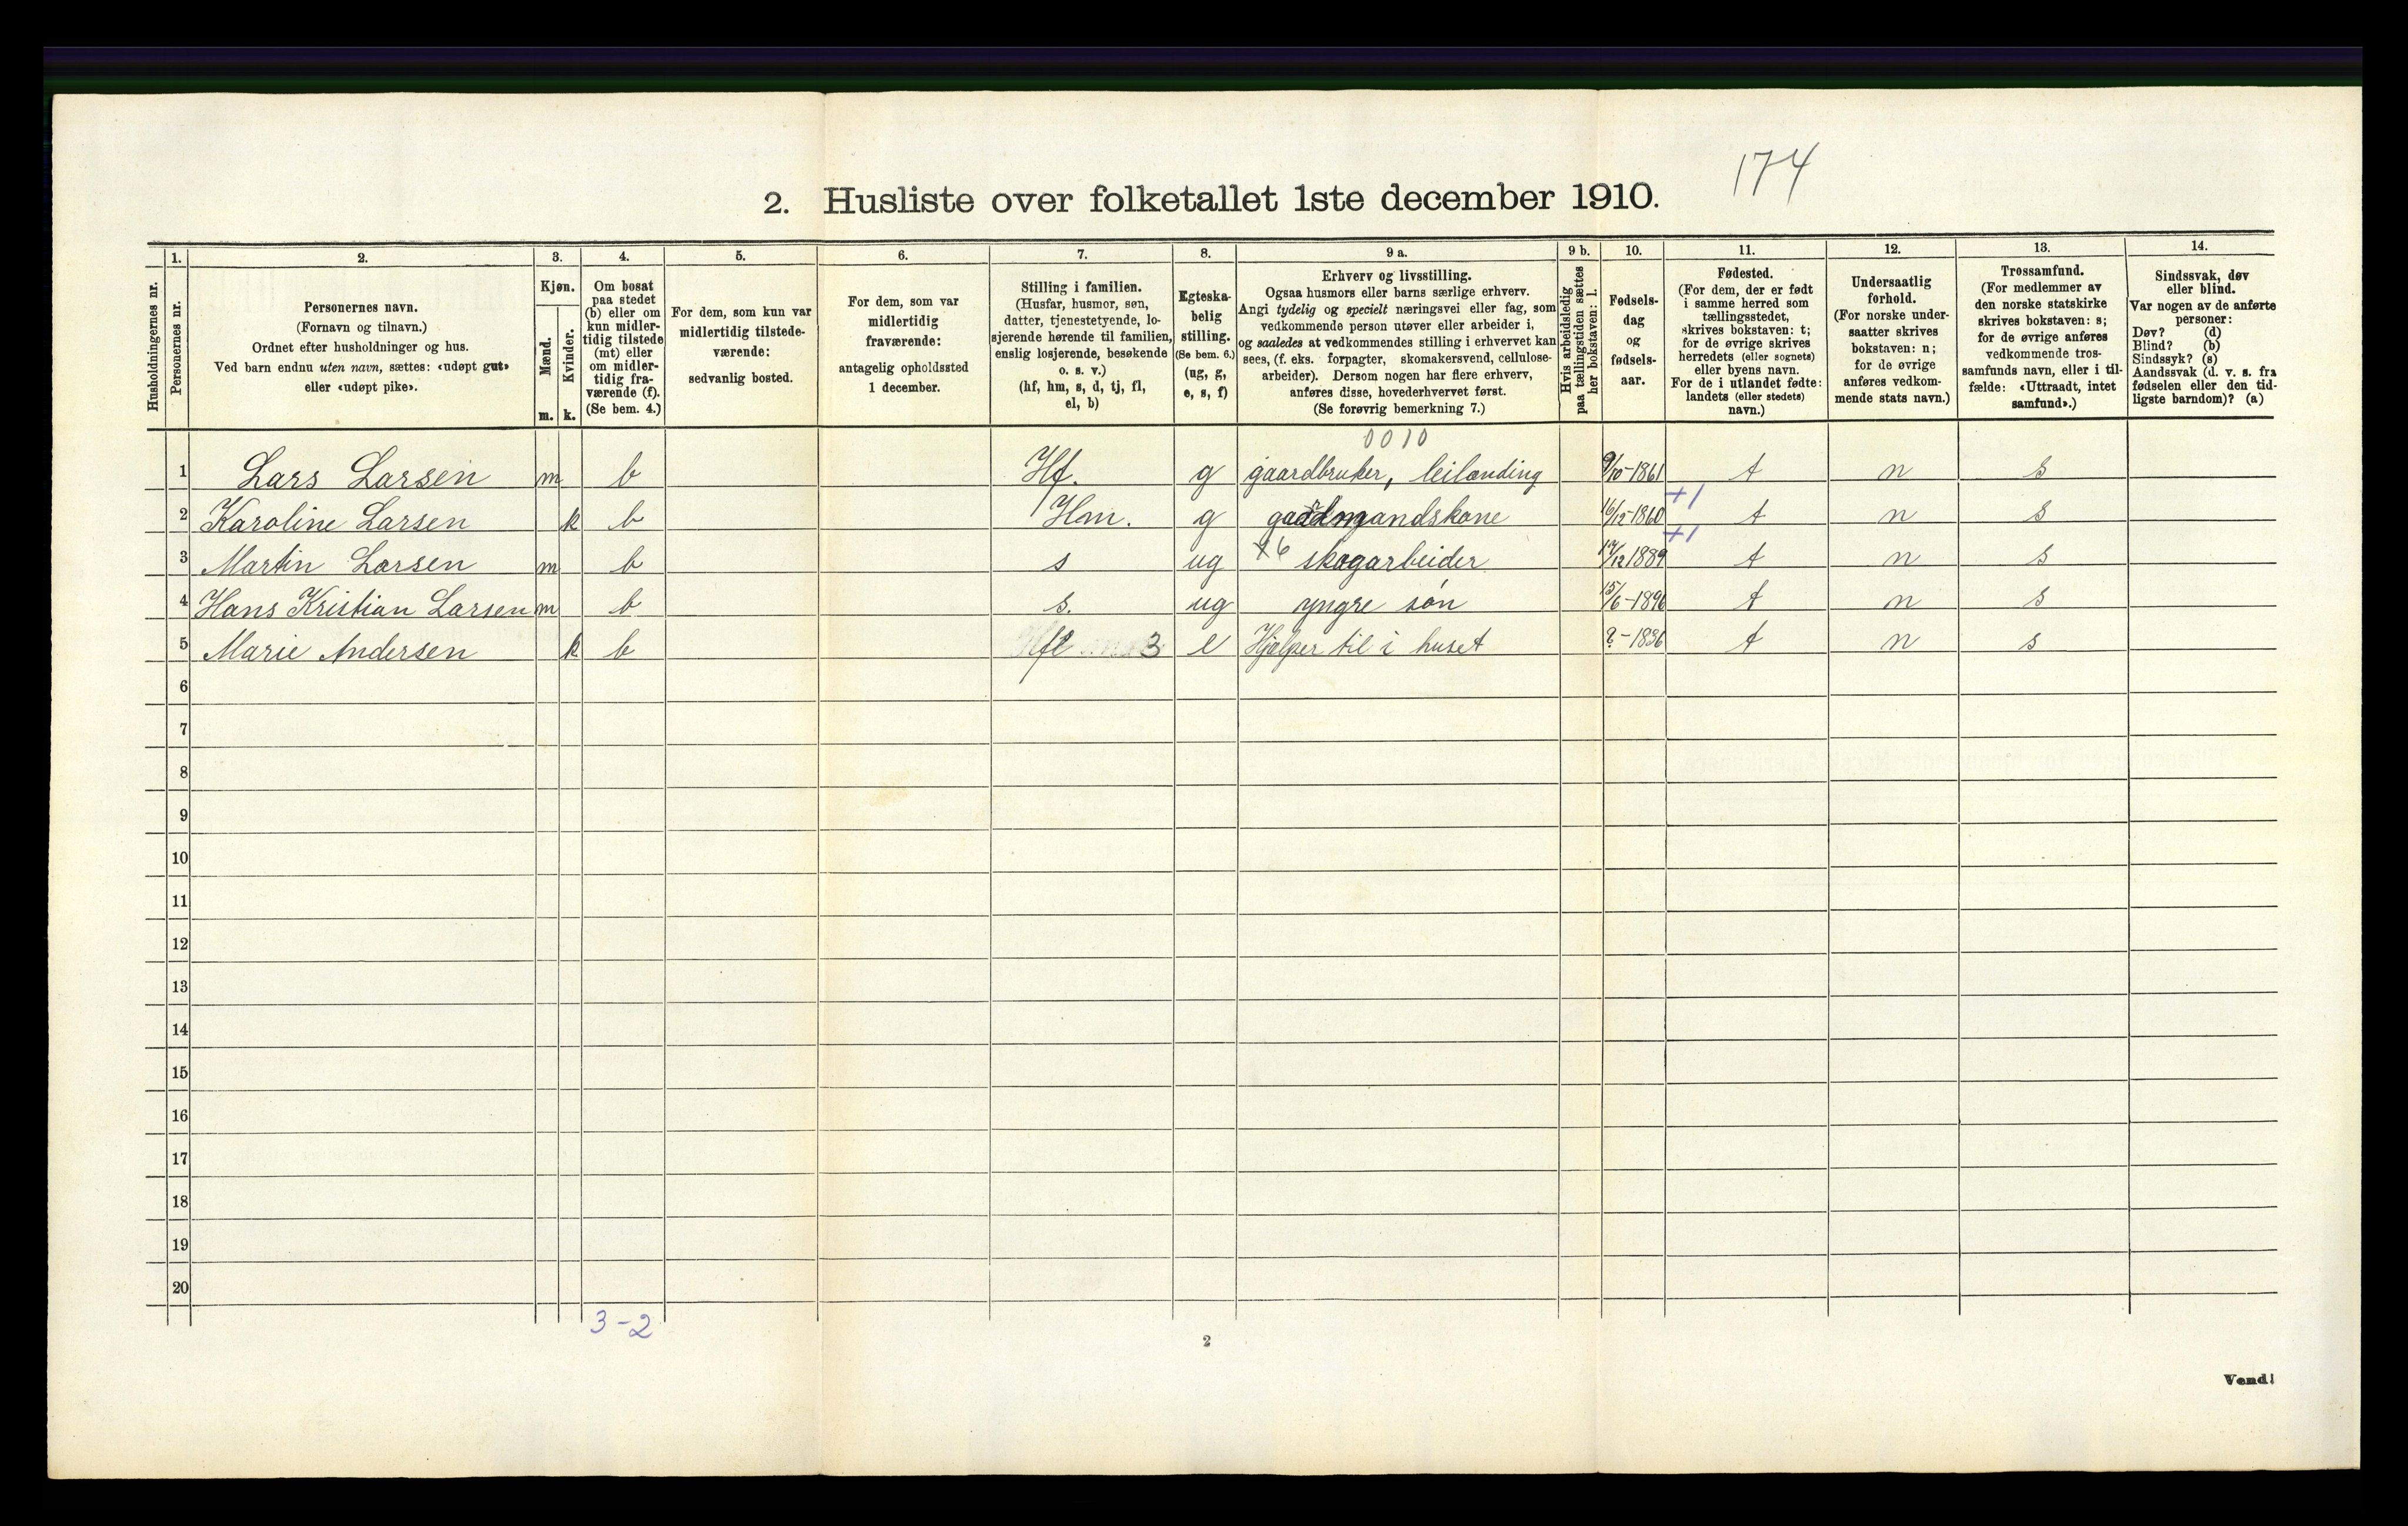 174
2. Husliste over folketallet 1ste december 1910.
Husholdningernes nr.
1.
Personernes nr.
2.
Personernes navn.
(Fornavn og tilnavn.)
Ordnet efter husholdninger og hus.
Ved barn endnu uten navn, sættes: «udøpt gut»
eller «udøpt pike».
3.
Kjøn.
Mænd.
m.
Kvinder.
k.
4.
Om bosat
paa stedet
(b) eller om
kun midler-
tidig tilstede
(mt) eller
om midler-
tidig fra-
værende (f).
(Se bem. 4.)
5.
For dem, som kun var
midlertidig tilstede-
værende:
sedvanlig bosted.
6.
For dem, som var
midlertidig
fraværende:
antagelig opholdssted
1 december.
7.
Stilling i familien.
(Husfar, husmor, søn,
datter, tjenestetyende, lo-
sjerende hørende til familien,
enslig losjerende, besøkende
o. s. v.)
(hf, hm, s, d, tj, fl,
el, b)
8.
Egteska-
belig
stilling.
(Se bem. 6.)
(ug, g,
e, s, f)
9 a.
Erhverv og livsstilling.
Ogsaa husmors eller barns særlige erhverv.
Angi tydelig og specielt næringsvei eller fag, som
vedkommende person utøver eller arbeider i,
og saaledes at vedkommendes stilling i erhvervet kan
sees, (f. eks. forpagter, skomakersvend, cellulose-
arbeider). Dersom nogen har flere erhverv,
anføres disse, hovederhvervet først.
(Se forøvrig bemerkning 7.)
9 b.
Hvis arbeidsledig
paa tællingstiden sættes
her bokstaven: l.
10.
Fødsels-
dag
og
fødsels-
aar.
11.
Fødested.
(For dem, der er født
i samme herred som
tællingsstedet,
skrives bokstaven: t;
for de øvrige skrives
herredets (eller sognets)
eller byens navn.
For de i utlandet fødte:
landets (eller stedets)
navn.)
12.
Undersaatlig
forhold.
(For norske under-
saatter skrives
bokstaven: n;
for de øvrige
anføres vedkom-
mende stats navn.)
13.
Trossamfund.
(For medlemmer av
den norske statskirke
skrives bokstaven: s;
for de øvrige anføres
vedkommende tros-
samfunds navn, eller i til-
fælde: «Uttraadt, intet
samfund».)
14.
Sindssvak, døv
eller blind.
Var nogen av de anførte
personer:
Døv? (d)
Blind? (b)
Sindssyk? (s)
Aandssvak (d. v. s. fra
fødselen eller den tid-
ligste barndom)? (a)
0010
1 Lars Larsen m b Hf. g gaardbruker, leilænding 9/10-1861 t n s
+1
2 Karoline Larsen k b Hm. g gaardmandskone 16/12-1860 t n s
+1
3 Martin Larsen m b s ug +6 skogarbeider 12/12 1889 t n s
4 Hans Kristian Larsen m b s. ug yngre søn 15/6-1896 t n s
5 Marie Andersen k b fl 3 e Hjælper til i huset ?-1836 t n s
6
7
8
9
10
11
12
13
14
15
16
17
18
19
20
3-2
2
Vend!